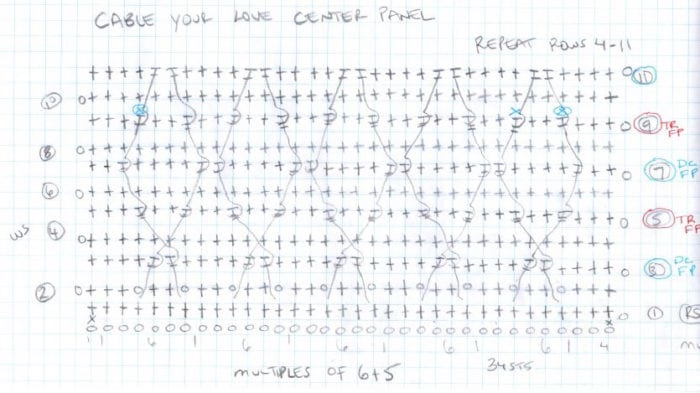 CABLE YOUR LOVE CENTER PANEL
REPEAT ROWS 4-11
11
10
9 TR FP
8
7 DC FP
6
5 TR FP
WS 4
3 DC FP
2
1 RS
1 1 6 1 6 1 6 1 6 1 6 1 4
MULTIPLES OF 6+5
34 STS